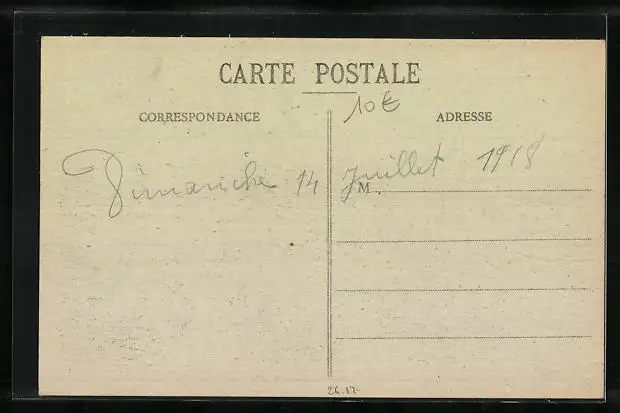 CARTE POSTALE
10€
CORRESPONDANCE
ADRESSE
Dimanche 14 Juillet 1918
M
26.17.